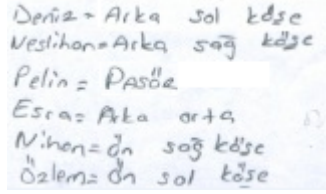 Deniz = Arka sol köşe
Neslihan = Arka sağ köşe
Pelin = Pasör
Esra = Arka orta
Nihan = ön sağ köşe
Özlem = ön sol köşe